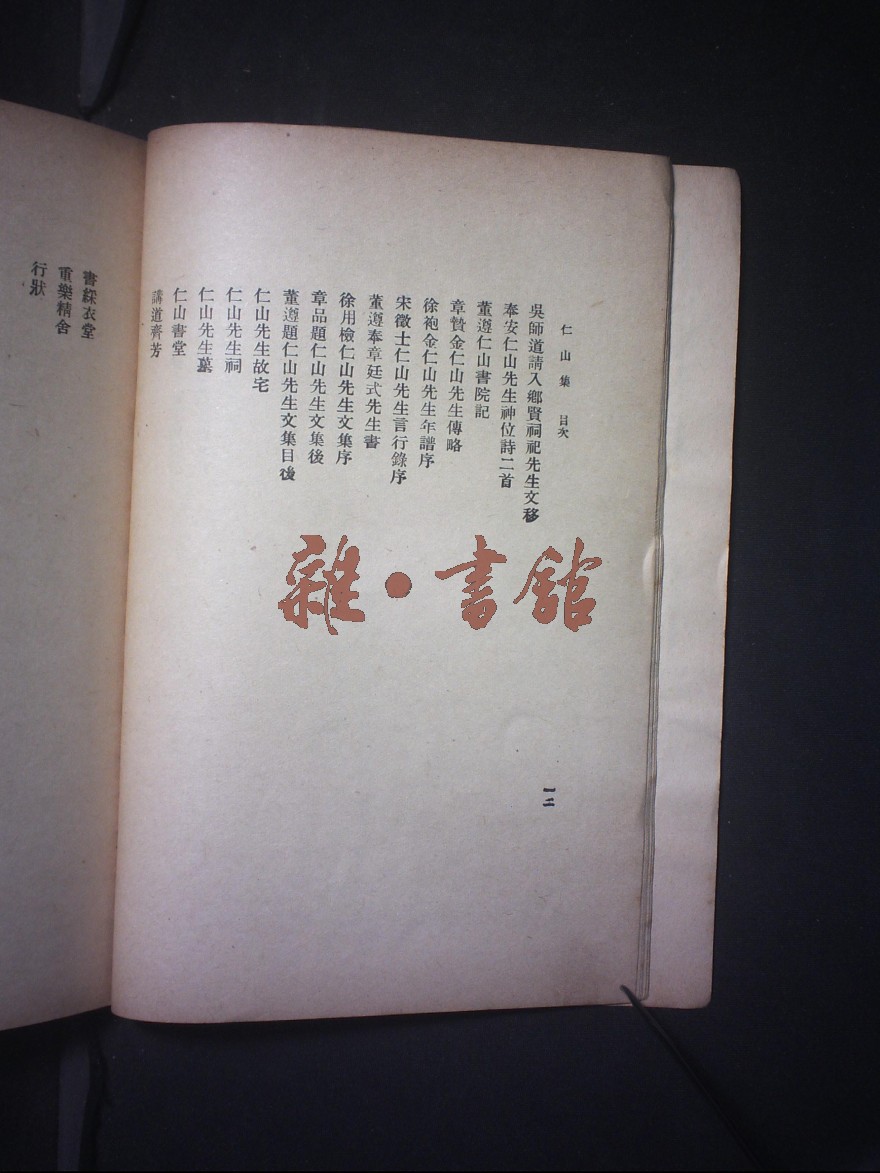 仁山集 目次
吳師道請入鄉賢祠祀先生文移
奉安仁山先生神位詩二首
董遵仁山書院記
章贄金仁山先生傳略
徐袍金仁山先生年譜序
宋徵士仁山先生言行錄序
董遵奉章廷式先生書
徐用檢仁山先生文集序
章品題仁山先生文集後
董遵題仁山先生文集目後
仁山先生故宅
仁山先生祠
仁山先生墓
仁山書堂
講道齊芳
一二
書綵衣堂
重樂精舍
行狀
雜·書館